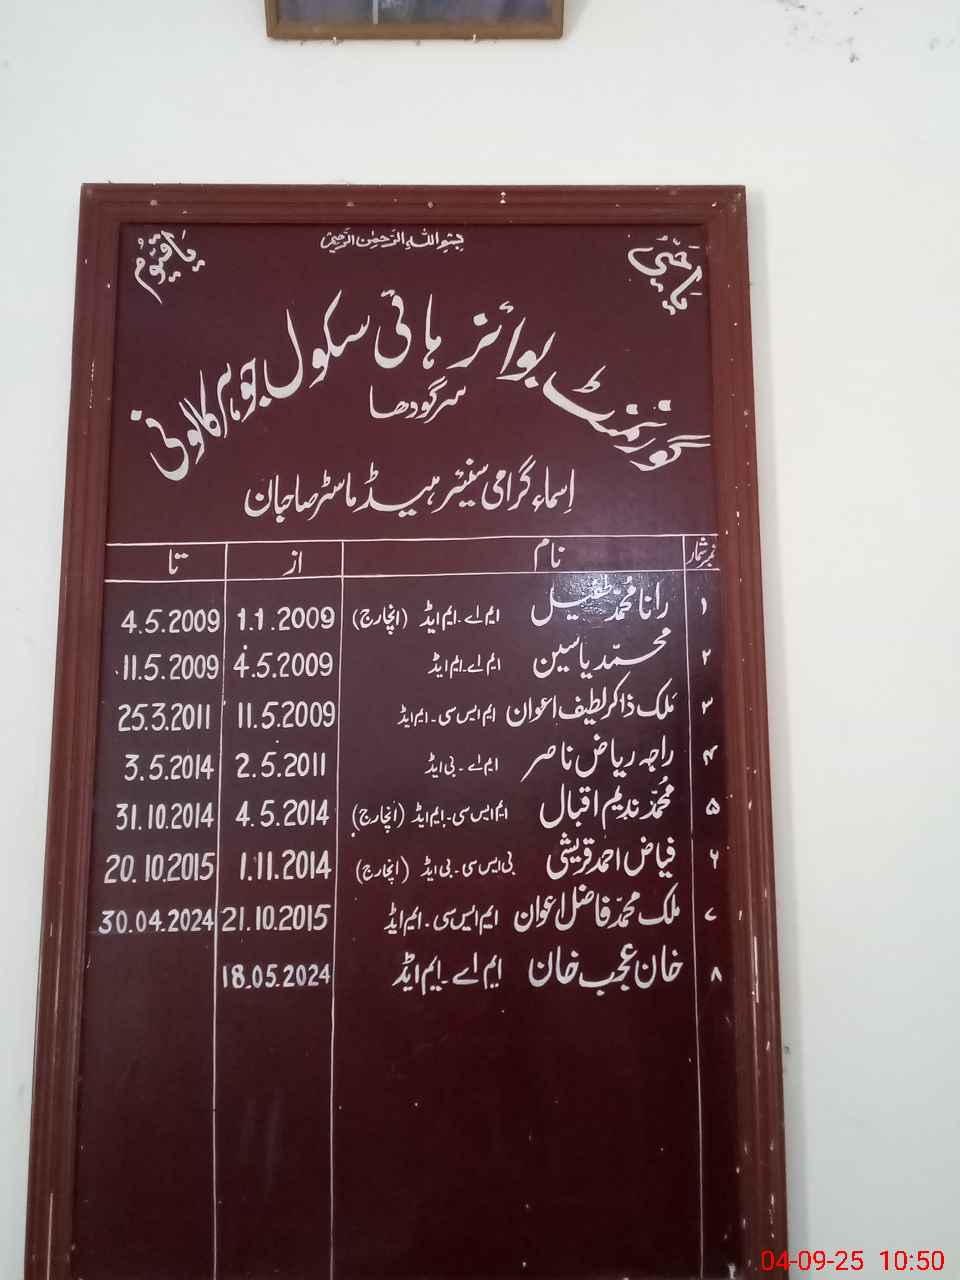 بِسْمِ اللّٰهِ الرَّحْمٰنِ الرَّحِيْمِ
یَا حَیُّ
یَا قَیُّوْمُ
گورنمنٹ بوائز ہائی سکول جوہر کالونی
سرگودھا
اسماء گرامی سینئر ہیڈ ماسٹر صاحبان
نمبر شمار نام از تا
۱ رانا محمد طفیل ایم اے۔ ایم ایڈ (انچارج) 1.1.2009 4.5.2009
۲ محمّد یاسین ایم اے۔ ایم ایڈ 4.5.2009 11.5.2009
۳ ملک ذاکر لطیف اعوان ایم ایس سی۔ ایم ایڈ 11.5.2009 25.3.2011
۴ راجہ ریاض ناصر ایم اے۔ بی ایڈ 2.5.2011 3.5.2014
۵ محمّد ندیم اقبال ایم ایس سی۔ ایم ایڈ (انچارج) 4.5.2014 31.10.2014
۶ فیاض احمد قریشی بی ایس سی۔ بی ایڈ (انچارج) 1.11.2014 20.10.2015
۷ ملک محمّد فاضل اعوان ایم ایس سی۔ ایم ایڈ 21.10.2015 30.04.2024
۸ خان عجب خان ایم اے۔ ایم ایڈ 18.05.2024
04-09-25 10:50